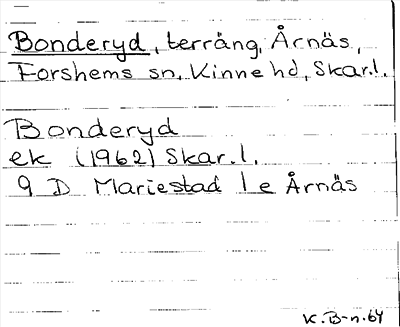 Bonderyd, terräng, Årnäs,
Forshems sn, Kinne hd, Skar.l.
Bonderyd
ek (1962) Skar.l.
9 D Mariestad 1 e Årnäs
K.B-n.64